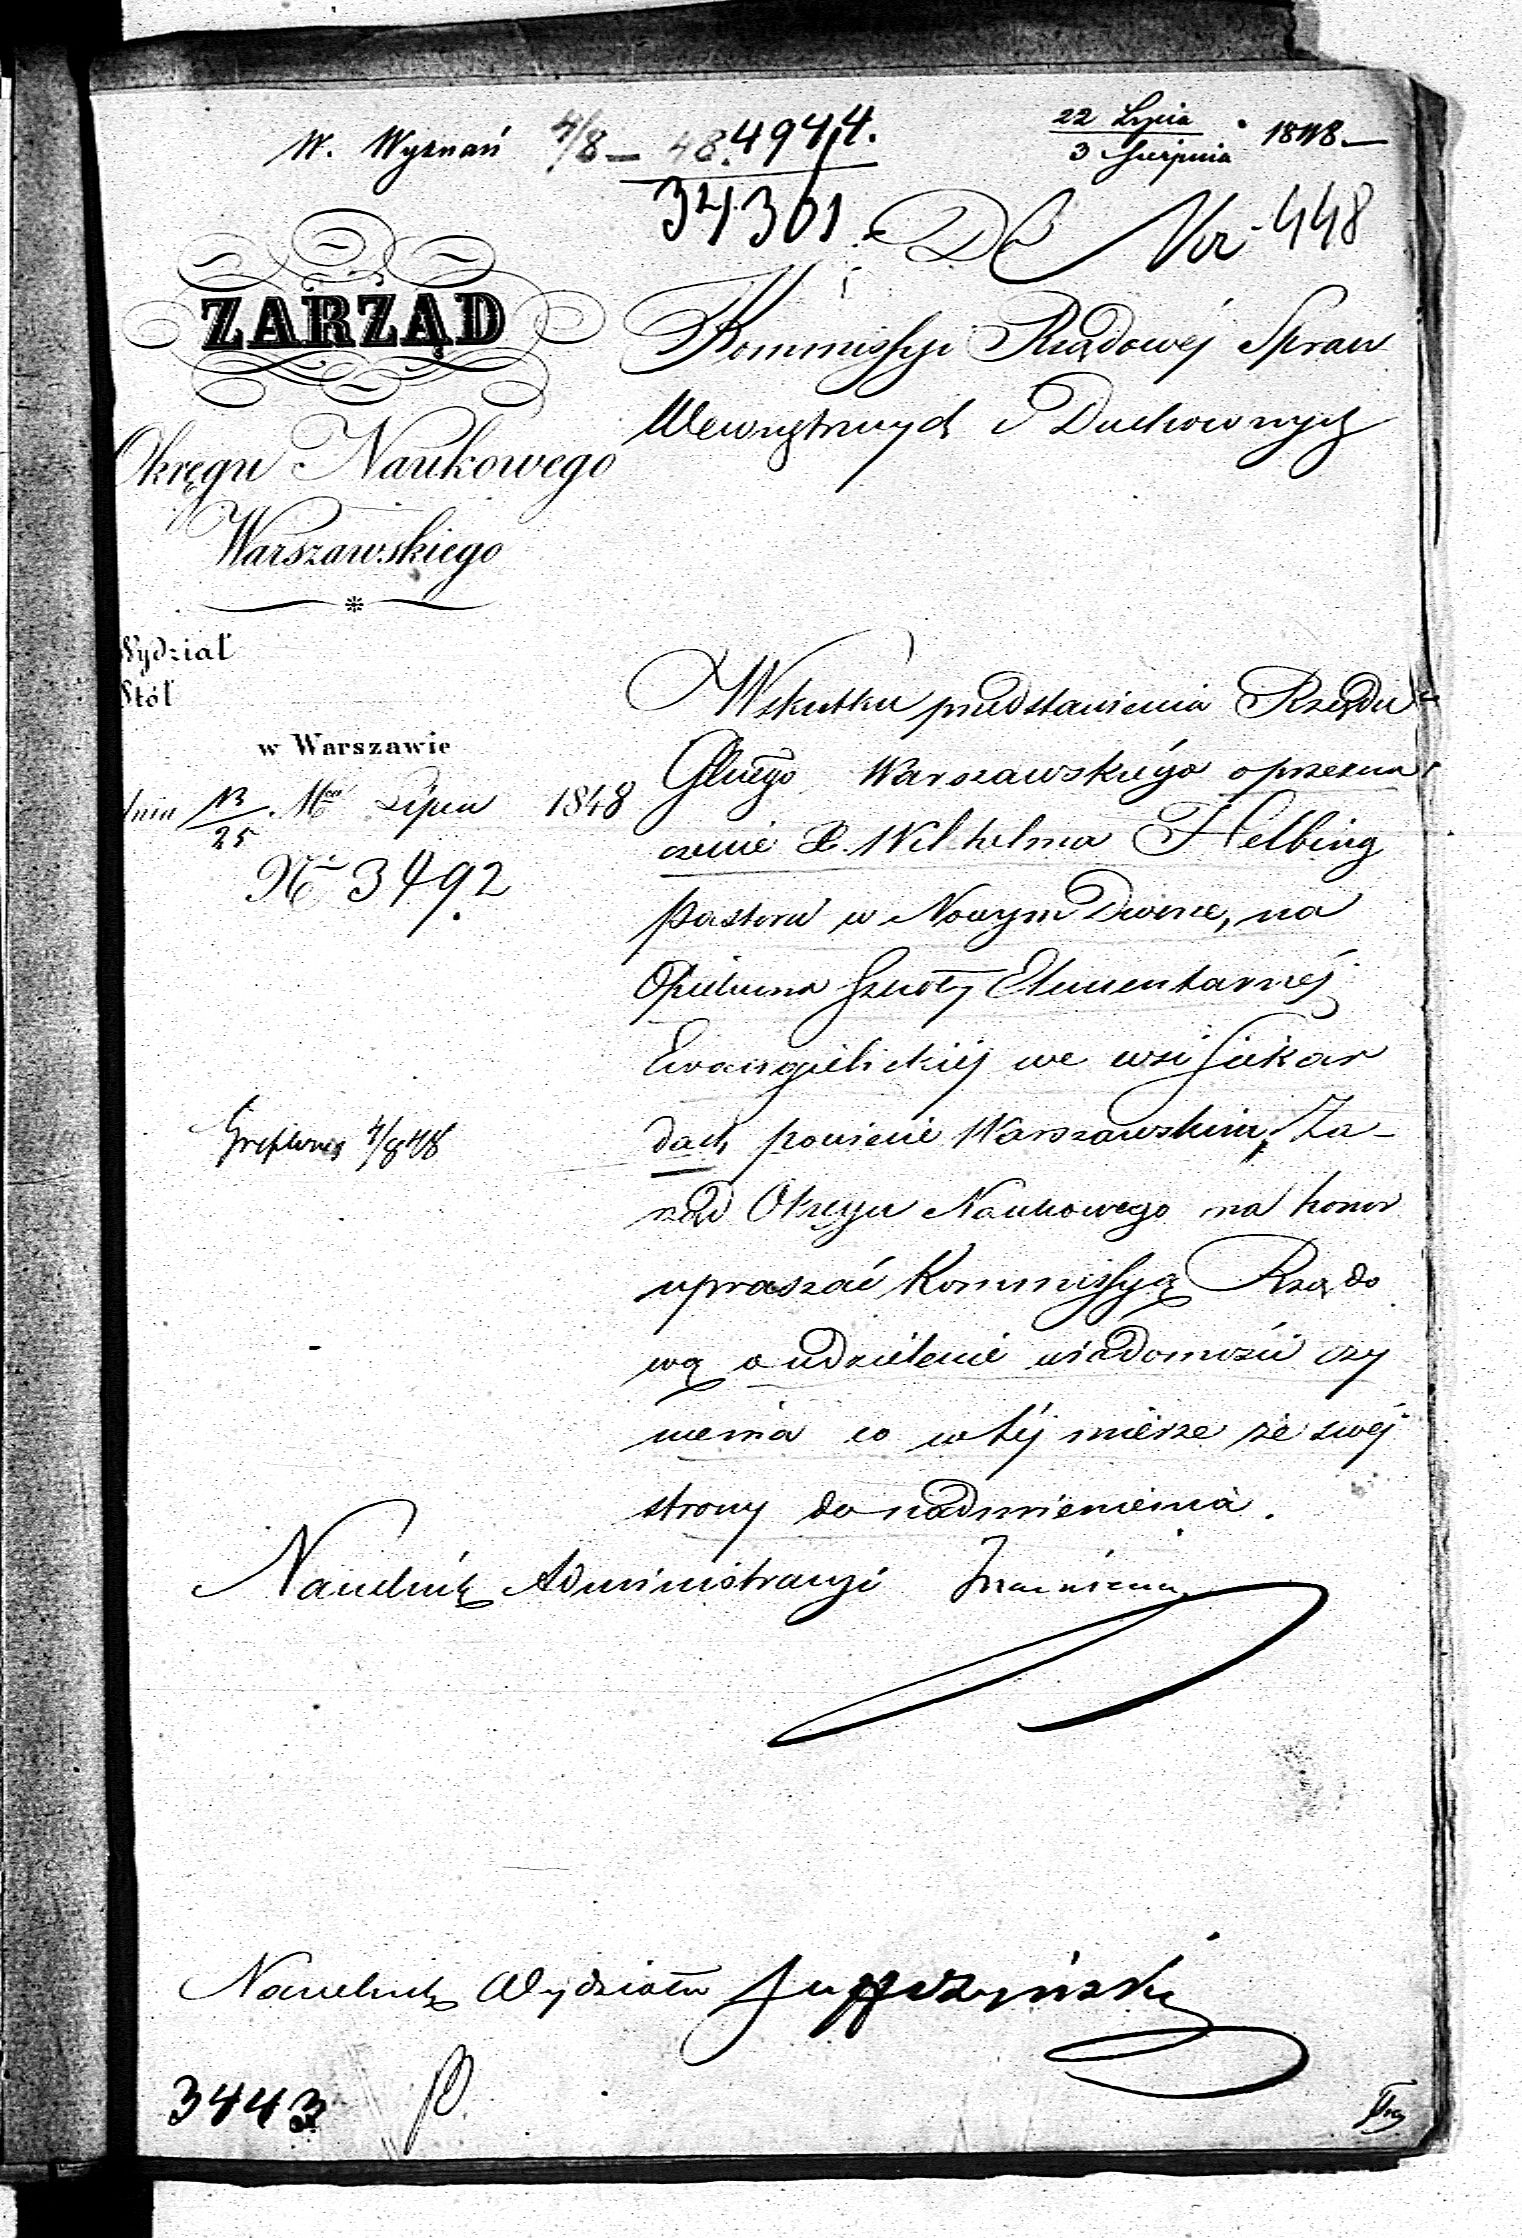 W. Wyznań 4/8 – 48. 4944.
34301.
22 Lipca
3 Sierpnia 1848 –
Do Nr 448
ZARZĄD
Okręgu Naukowego
Warszawskiego
Wydział
Stół
w Warszawie
dnia 13/25 Mca Lipca 1848
№ 3492
Kommissyi Rządowéj Spraw
Wewnętrznych i Duchownych
Wskutku przedstawienia Rządu
Gluégo Warszawskiégo o przezna
czenie X. Wilhelma Helbing
Pastora w Nowym Dworze, na
Opiekuna Szkoły Elementarnéj
Ewangielickiéj we wsi Siekar
dach powiecie Warszawskim, Za-
rząd Okręgu Naukowego ma honor
upraszać Kommissyą Rządo
wą o udzielenie wiadomości czy
niema co w téj mierze ze swéj
strony do nadmienienia.
4/8 48
Naczelnik Administracyi
Naczelnik Wydziału
3443